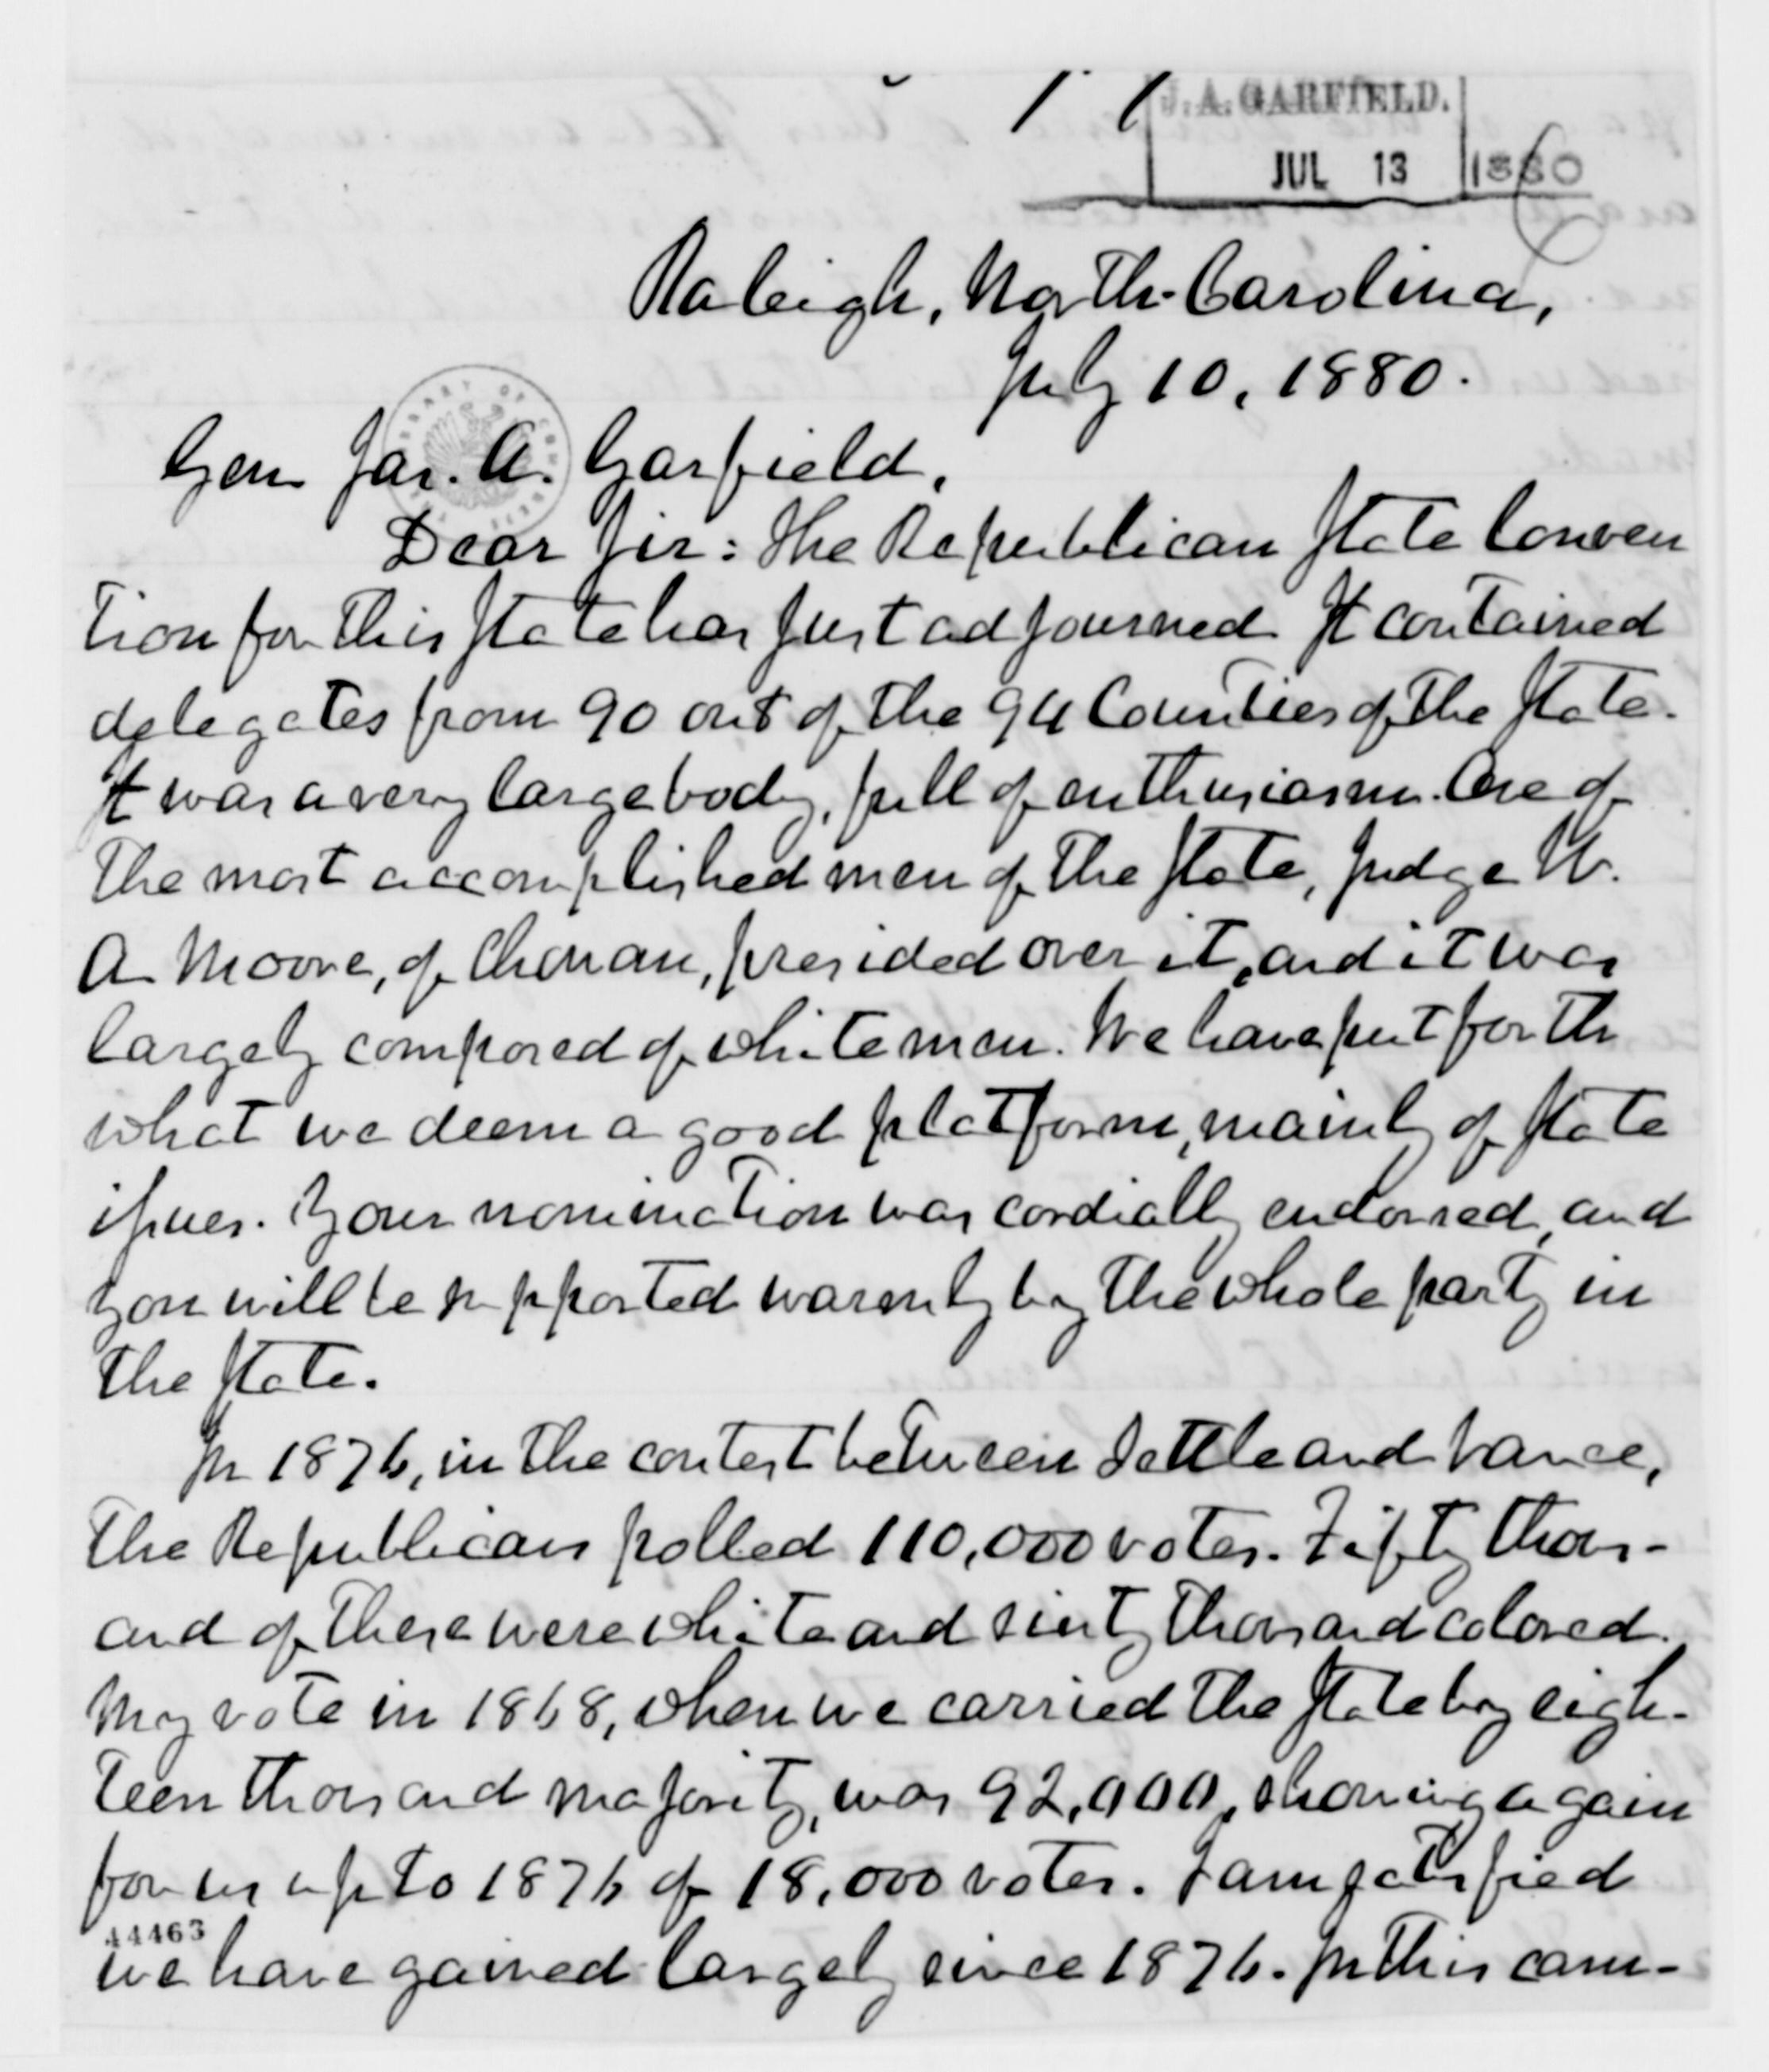 J. A. GARFIELD.
JUL 13 1880
Raleigh, North-Carolina,
July 10, 1880.
Gen Jas. A. Garfield,
Dear Sir: The Republican State Conven
tion for this State has just adjourned. It contained
delegates from 90 out of the 94 Counties of the State.
It was a very large body, full of enthusiasm. One of
the most accomplished men of the State, Judge W.
A Moore, of Chowan, presided over it, and it was
largely composed of white men. We have put forth
what we deem a good platform, mainly of State
issues. Your nomination was cordially endorsed, and
you will be supported warmly by the whole party in
the State.
In 1876, in the contest between Settle and Vance,
the Republicans polled 110,000 votes. Fifty thous-
and of these were white and sixty thousand colored.
My vote in 1868, when we carried the State by eigh-
teen thousand majority, was 92,000, showing a gain
for us up to 1876 of 18,000 votes. I am satisfied
44463
we have gained largely since 1876. In this cam-